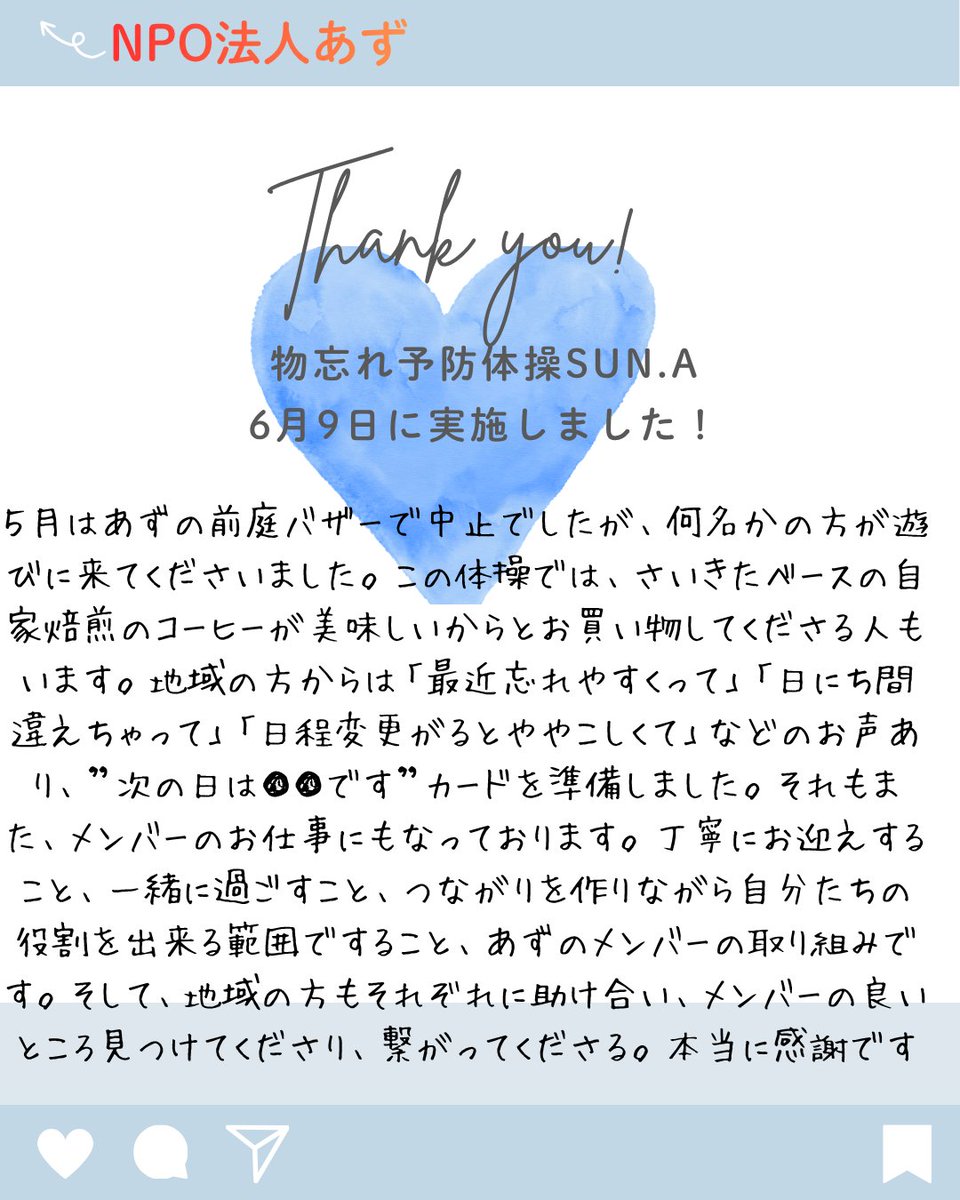 NPO法人あず
Thank you!
物忘れ予防体操SUN.A
6月9日に実施しました！
5月はあずの前庭バザーで中止でしたが、何名かの方が遊
びに来てくださいました。この体操では、さいきたベースの自
家焙煎のコーヒーが美味しいからとお買い物してくださる人も
います。地域の方からは「最近忘れやすくって」「日にち間
違えちゃって」「日程変更がるとややこしくて」などのお声あ
り、”次の日は●●です”カードを準備しました。それもま
た、メンバーのお仕事にもなっております。丁寧にお迎えする
こと、一緒に過ごすこと、つながりを作りながら自分たちの
役割を出来る範囲ですること、あずのメンバーの取り組みで
す。そして、地域の方もそれぞれに助け合い、メンバーの良い
ところ見つけてくださり、繋がってくださる。本当に感謝です